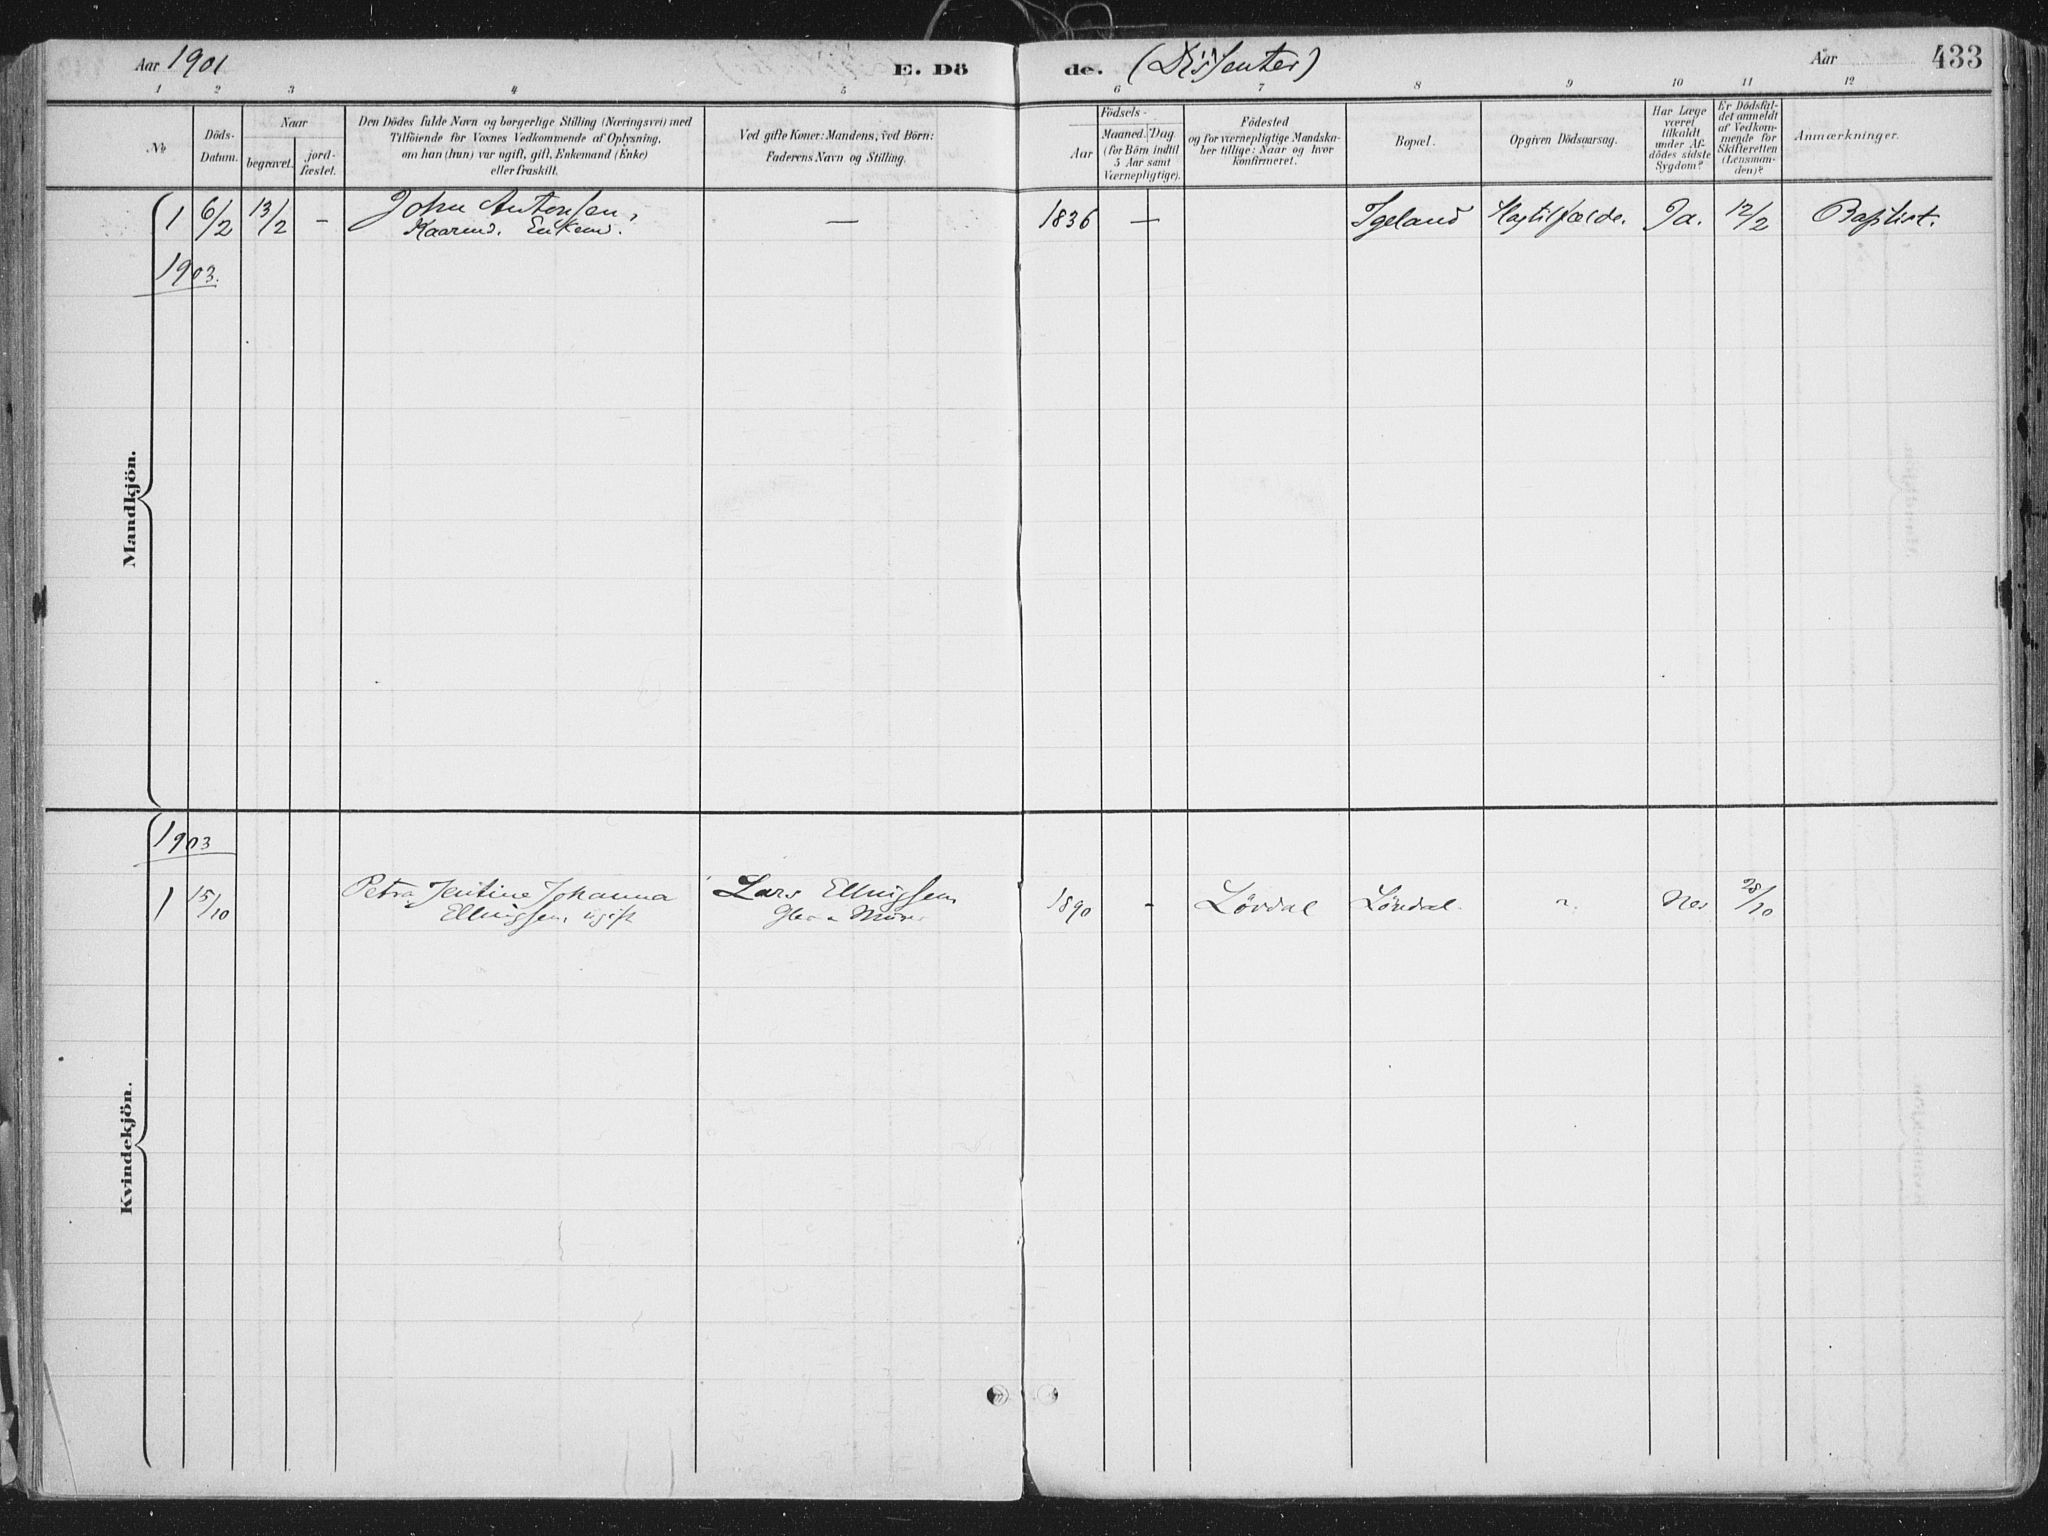 Aar 1901
E. Dö
de. (Dissenter)
Aar
433
1 2 3 4 5 6 7 8 9 10 11 12
No
Döds-
Datum.
Naar
begravet.
jord-
fæstet.
Den Dödes fulde Navn og borgerlige Stilling (Næringsvei) med
Tilföiende for Voxnes Vedkommende af Oplysning,
om han (hun) var ugift, gift, Enkemand (Enke)
eller fraskilt.
Ved gifte Koner: Mandens, ved Börn:
Faderens Navn og Stilling.
Födsels-
Aar
Maaned. Dag.
(for Börn indtil
5 Aar samt
Værnepligtige).
Födested
og for værnepligtige Mandska-
ber tillige: Naar og hvor
konfirmeret.
Bopæl.
Opgiven Dödsaarsag.
Har Læge
været
tilkaldt
under Af-
dödes sidste
Sygdom?
Er Dödsfal-
det anmeldt
af Vedkom-
mende for
Skifteretten
(Lensman-
den)?
Anmærkninger.
Mandkjön.
1 6/2 13/2 - John Antonsen, — 1836 — Igeland Ja. 12/2 Baptist.
Kaarmd. Enkemd.
1903.
Kvindekjön.
1903
1 15/10 Petra Jentine Johanna Lars Ellingsen 1890 - Lövdal Lövdal. Nei 28/10
Ellingsen ugift